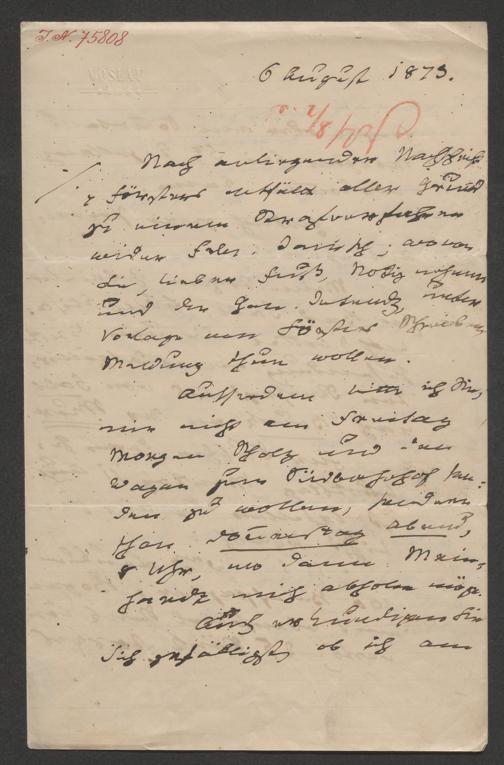 I. N. 75808
VÖSLAU
6 August 1873.
Nach anliegender Nachricht
v Försters entfällt aller Grund
zu einem Strafverfahren
wider Frln. ; wovon
Sie, lieber , Notiz nehmen
und der Gen. Intendz. unter
Vorlage von Försters Schreiben
Meldung thun wollen.
Ausserdem bitte ich Sie,
mir nicht am Freitag
Morgen und den
Wagen zum Südbahnhof sen-
den zu wollen, sondern
schon donnerstag abend,
8 Uhr, wo dann
mich abholen möge.
Auch erkundigen Sie
sich gefälligst, ob ich am